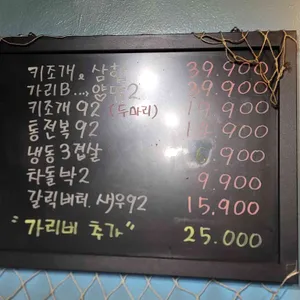 키조개, 삼합 39.900
가리B..., 양념2 29.900
키조개 92 (두마리) 19.900
통전복 92
냉동3겹살 9.900
차돌박2 9.900
갈릭버터, 새우92 15.900
"가리비 추가" 25.000